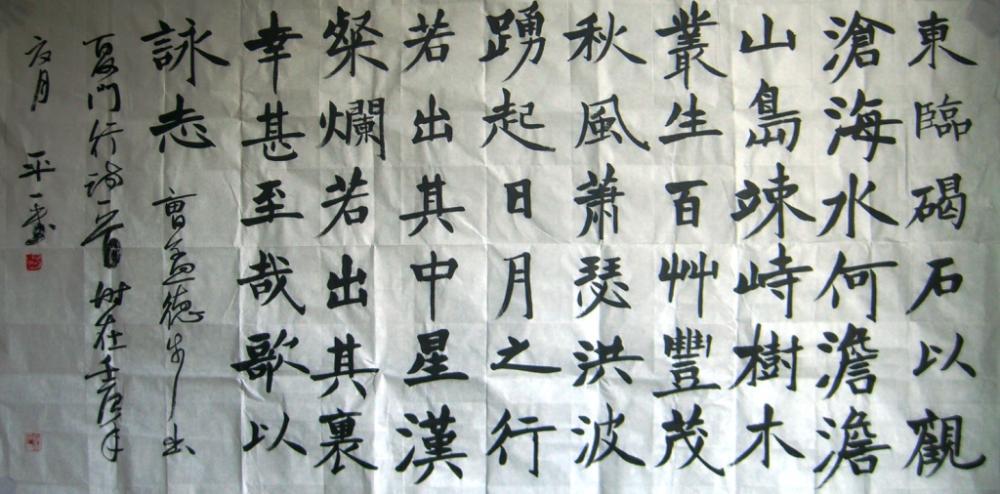 東臨碣石以觀
滄海水何澹澹
山島竦峙樹木
叢生百艸豐茂
秋風蕭瑟洪波
踴起日月之行
若出其中星漢
粲爛若出其裏
幸甚至哉歌以
詠志 曹孟德步出
夏門行詩一首 時在壬辰年
月 平一書